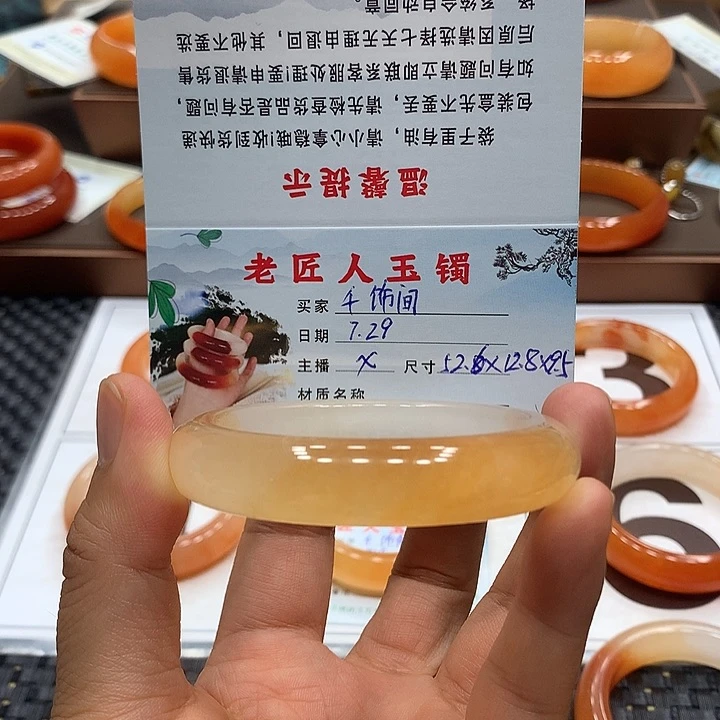 温馨提示
袋子里有油，请小心拿稳哦!收到货快递
包装盒先不要丢，请先检查货品是否有问题，
如有问题请立即联系客服处理!要申请退货售
后原因请选择七天无理由退回，其他不要选
择，系统会自动同意
老匠人玉镯
买家 千饰间
日期 7.29
主播 X 尺寸 52.6X12.8X9.5
材质名称
3
6